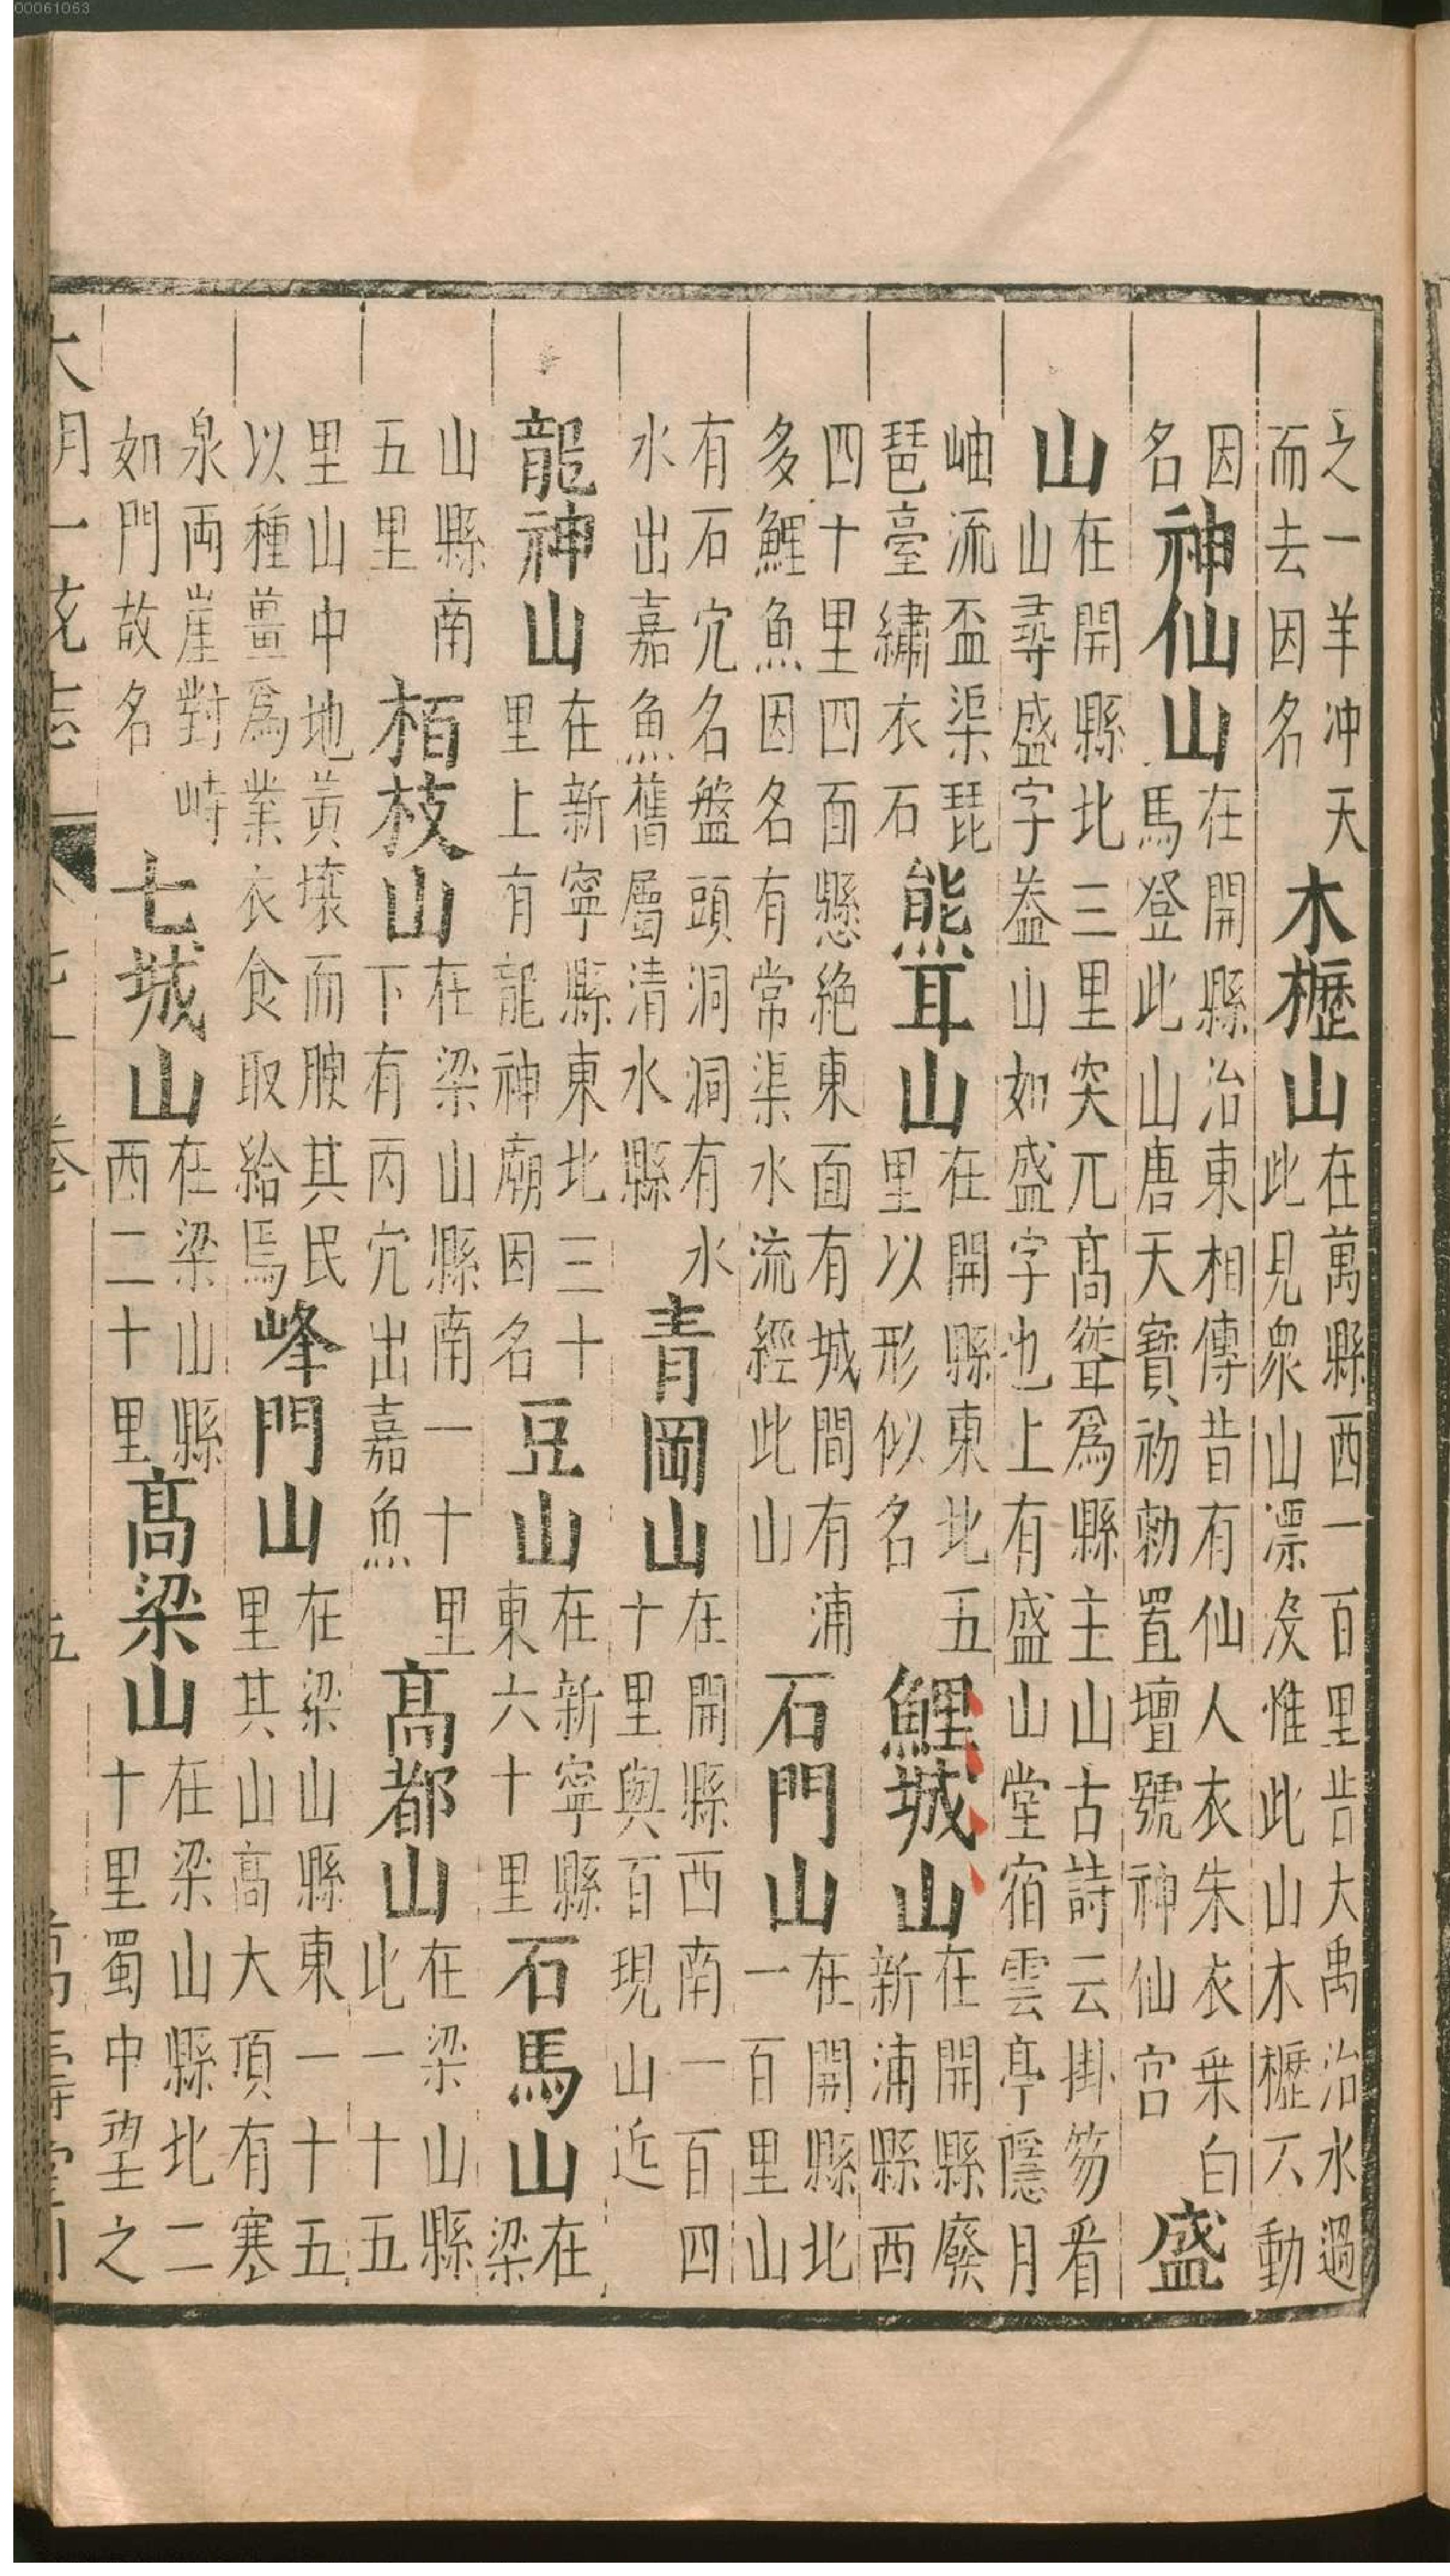 之一羊冲天而去因名木櫪山在萬縣西一百里昔大禹治水過此見衆山漂没惟此山木櫪不動
因名神仙山在開縣治東相傳昔有仙人衣朱衣乗白馬登此山唐天寶初勅置壇號神仙宮盛
山在開縣北三里突兀髙聳爲縣主山古詩云掛笏看山尋盛字葢山如盛字也上有盛山堂宿雲亭隱月
岫流盃渠琵琶臺繡衣石熊耳山在開縣東北五里以形似名鯉城山在開縣廢新浦縣西
四十里四面懸絶東面有城間有浦多鯉魚因名有常渠水流經此山石門山在開縣北一百里山
有石穴名盤頭洞洞有水水出嘉魚舊屬清水縣青岡山在開縣西南一百四十里與百現山近
龍神山在新寧縣東北三十里上有龍神廟因名豆山在新寧縣東六十里石馬山在梁
山縣南五里栢枝山在梁山縣南一十里下有丙穴出嘉魚髙都山在梁山縣北一十五
里山中地黃壤而腴其民以種薑爲業衣食取給焉峰門山在梁山縣東一十五里其山髙大頂有寒
泉両崖對峙如門故名七城山在梁山縣西二十里髙梁山在梁山縣北二十里蜀中望之
00061063